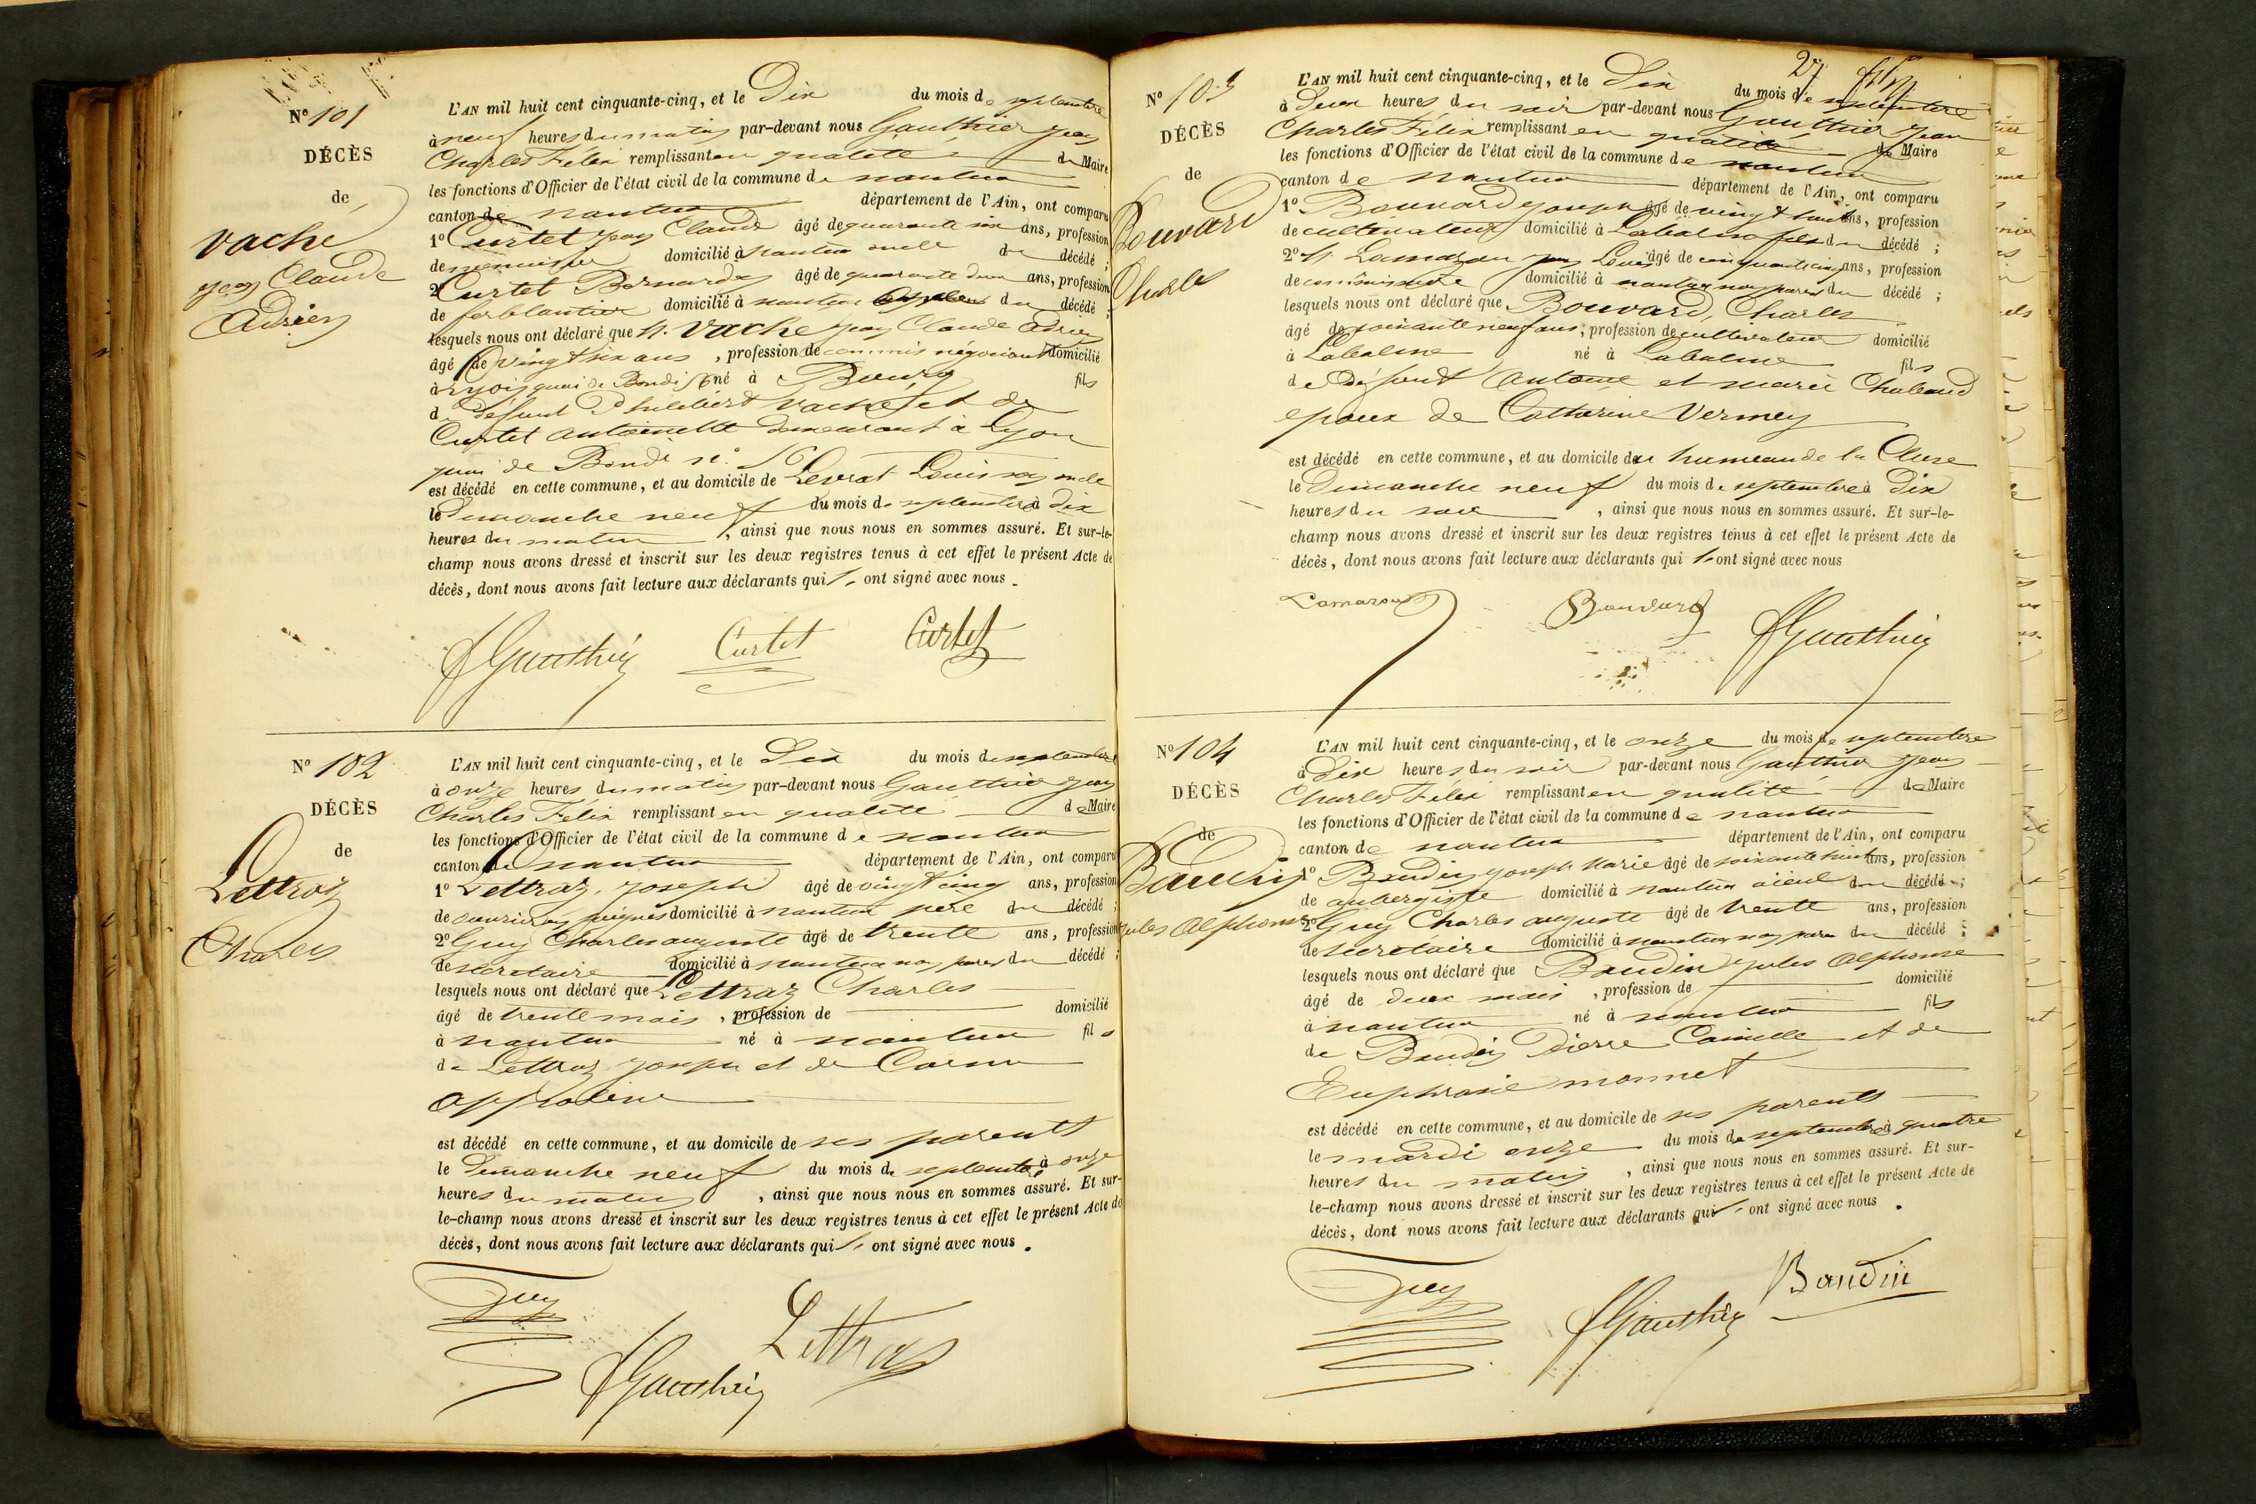 No 101
DÉCÈS
de
Vaché
Jean Claude
Adrien
L'AN mil huit cent cinquante-cinq, et le Dix du mois de septembre
à neuf heures du matin par-devant nous Gauthier Jean
Charles Félix remplissant en qualité de Maire
les fonctions d'Officier de l'état civil de la commune de nantua
canton de nantua département de l'Ain, ont comparu
1o Curtet Jean Claude âgé de quarante six ans, profession
de menuisier domicilié à nantua oncle du décédé ;
2o Curtet Bernard âgé de quarante deux ans, profession
de ferblantier domicilié à nantua du décédé ;
lesquels nous ont déclaré que M. Vaché Jean Claude Adrien
âgé de vingt six ans, profession de commis négociant domicilié
à Lyon quai de Bondi né à Bourg fils
de défunt Philibert Vaché et de
Curtet Antoinette demeurant à Lyon
quai de Bondi no
est décédé en cette commune, et au domicile de Levrat Louis son oncle
le Dimanche neuf du mois de septembre à dix
heures du matin, ainsi que nous nous en sommes assuré. Et sur-le-
champ nous avons dressé et inscrit sur les deux registres tenus à cet effet le présent Acte de
décès, dont nous avons fait lecture aux déclarants qui ont signé avec nous.
fGauthier Curtet Curtet
No 102
DÉCÈS
de
Lettraz
Charles
L'AN mil huit cent cinquante-cinq, et le Dix du mois de septembre
à onze heures du matin par-devant nous Gauthier Jean
Charles Félix remplissant en qualité de Maire
les fonctions d'Officier de l'état civil de la commune de nantua
canton de nantua département de l'Ain, ont comparu
1o Lettraz Joseph âgé de vingt cinq ans, profession
de ouvrier en peignes domicilié à nantua père du décédé ;
2o Guy Charles auguste âgé de trente ans, profession
de secretaire domicilié à nantua non parent du décédé ;
lesquels nous ont déclaré que Lettraz Charles
âgé de trente mois, profession de domicilié
à nantua né à nantua fils
de Lettraz Joseph et de
est décédé en cette commune, et au domicile de ses parents
le Dimanche neuf du mois de septembre à onze
heures du matin, ainsi que nous nous en sommes assuré. Et sur-
le-champ nous avons dressé et inscrit sur les deux registres tenus à cet effet le présent Acte de
décès, dont nous avons fait lecture aux déclarants qui ont signé avec nous.
Guy
fGauthier Lettraz
27
No 103
DÉCÈS
de
Bouvard
Charles
L'AN mil huit cent cinquante-cinq, et le Dix du mois de septembre
à Deux heures du soir par-devant nous Gauthier Jean
Charles Félix remplissant en qualité de Maire
les fonctions d'Officier de l'état civil de la commune de nantua
canton de nantua département de l'Ain, ont comparu
1o Bouvard Joseph âgé de vingt huit ans, profession
de cultivateur domicilié à Labalme fils du décédé ;
2o M. Lamazou Jean Louis âgé de cinquante cinq ans, profession
de commissaire domicilié à nantua non parent du décédé ;
lesquels nous ont déclaré que Bouvard, Charles
âgé de soixante neuf ans, profession de cultivateur domicilié
à Labalme né à Labalme fils
de Défunt Antoine et marie Chaboud
epoux de Catherine Vermey
est décédé en cette commune, et au domicile de hameau de la Cluse
le Dimanche neuf du mois de septembre à Dix
heures du soir, ainsi que nous nous en sommes assuré. Et sur-le-
champ nous avons dressé et inscrit sur les deux registres tenus à cet effet le présent Acte de
décès, dont nous avons fait lecture aux déclarants qui ont signé avec nous
Lamazou Bouvard fGauthier
No 104
DÉCÈS
de
Baudin
Jules Alphonse
L'AN mil huit cent cinquante-cinq, et le onze du mois de septembre
à Dix heures du soir par-devant nous Gauthier Jean
Charles Félix remplissant en qualité de Maire
les fonctions d'Officier de l'état civil de la commune de nantua
canton de nantua département de l'Ain, ont comparu
1o Baudin Joseph Marie âgé de soixante huit ans, profession
de aubergiste domicilié à nantua aieul du décédé ;
2o Guy Charles auguste âgé de trente ans, profession
de secretaire domicilié à nantua non parent du décédé ;
lesquels nous ont déclaré que Baudin Jules Alphonse
âgé de deux mois, profession de domicilié
à nantua né à nantua fils
de Baudin Pierre Camille et de
Euphrasie monnet
est décédé en cette commune, et au domicile de ses parents
le mardi onze du mois de septembre à quatre
heures du matin, ainsi que nous nous en sommes assuré. Et sur-
le-champ nous avons dressé et inscrit sur les deux registres tenus à cet effet le présent Acte de
décès, dont nous avons fait lecture aux déclarants qui ont signé avec nous.
Guy fGauthier Baudin